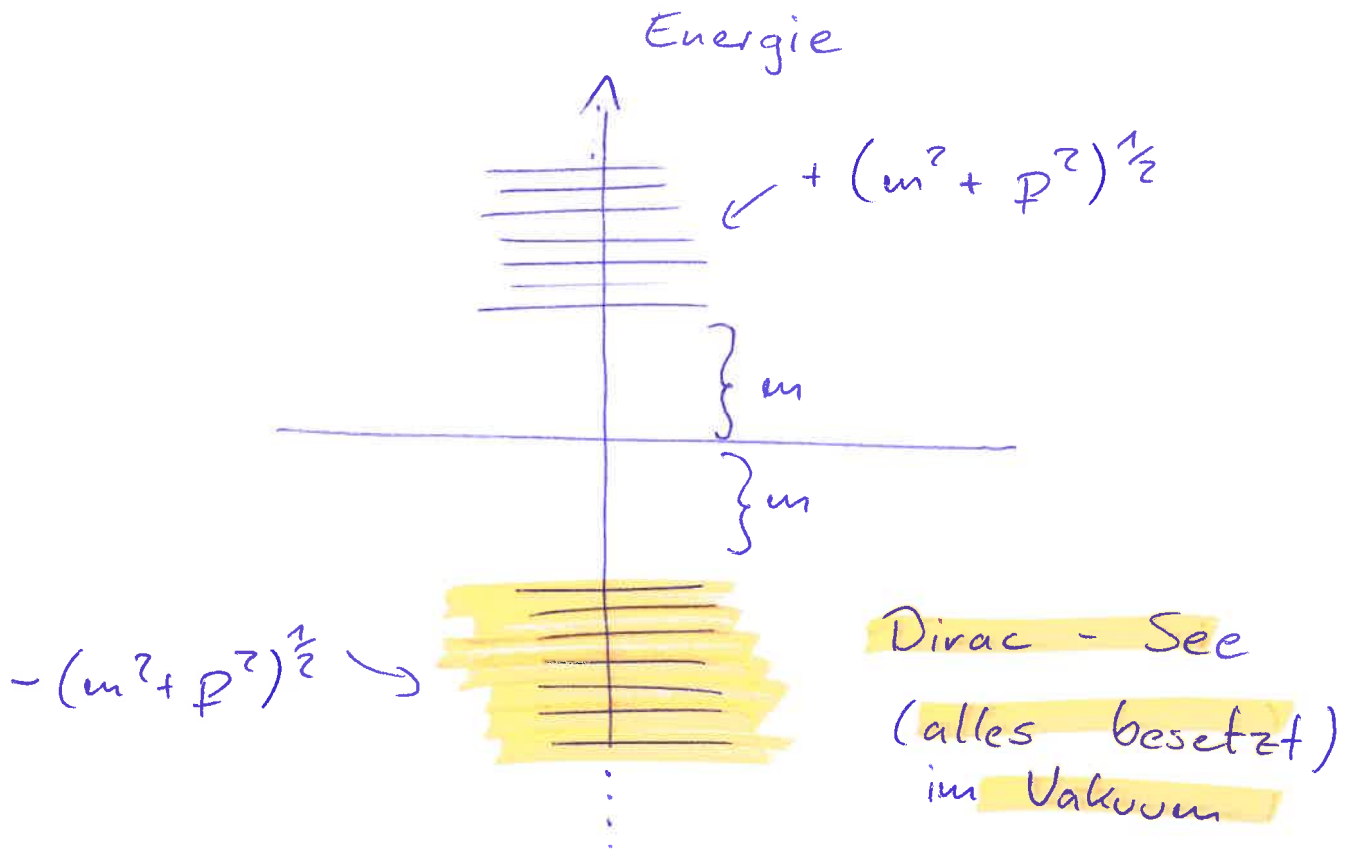 Energie
+ (m² + p²)^½
} m
} m
- (m² + p²)^½
Dirac - See
(alles besetzt)
im Vakuum